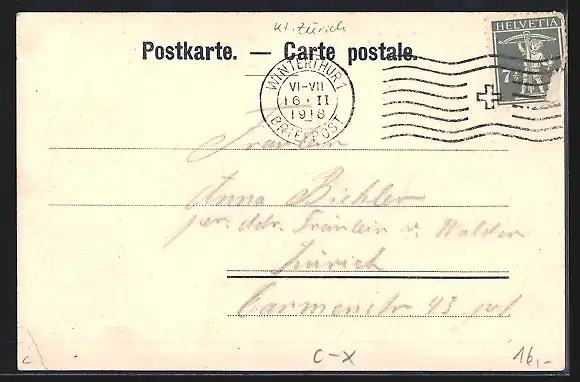 Kt. Zürich
Postkarte. — Carte postale.
HELVETIA
7½
WINTERTHUR 1
VI-VII
16·II
1918
BRIEFPOST
Fräulein
Anna Bichler
per. Adr. Fräulein v. Walder
Zürich
Carmenstr 43
C-X
16,-